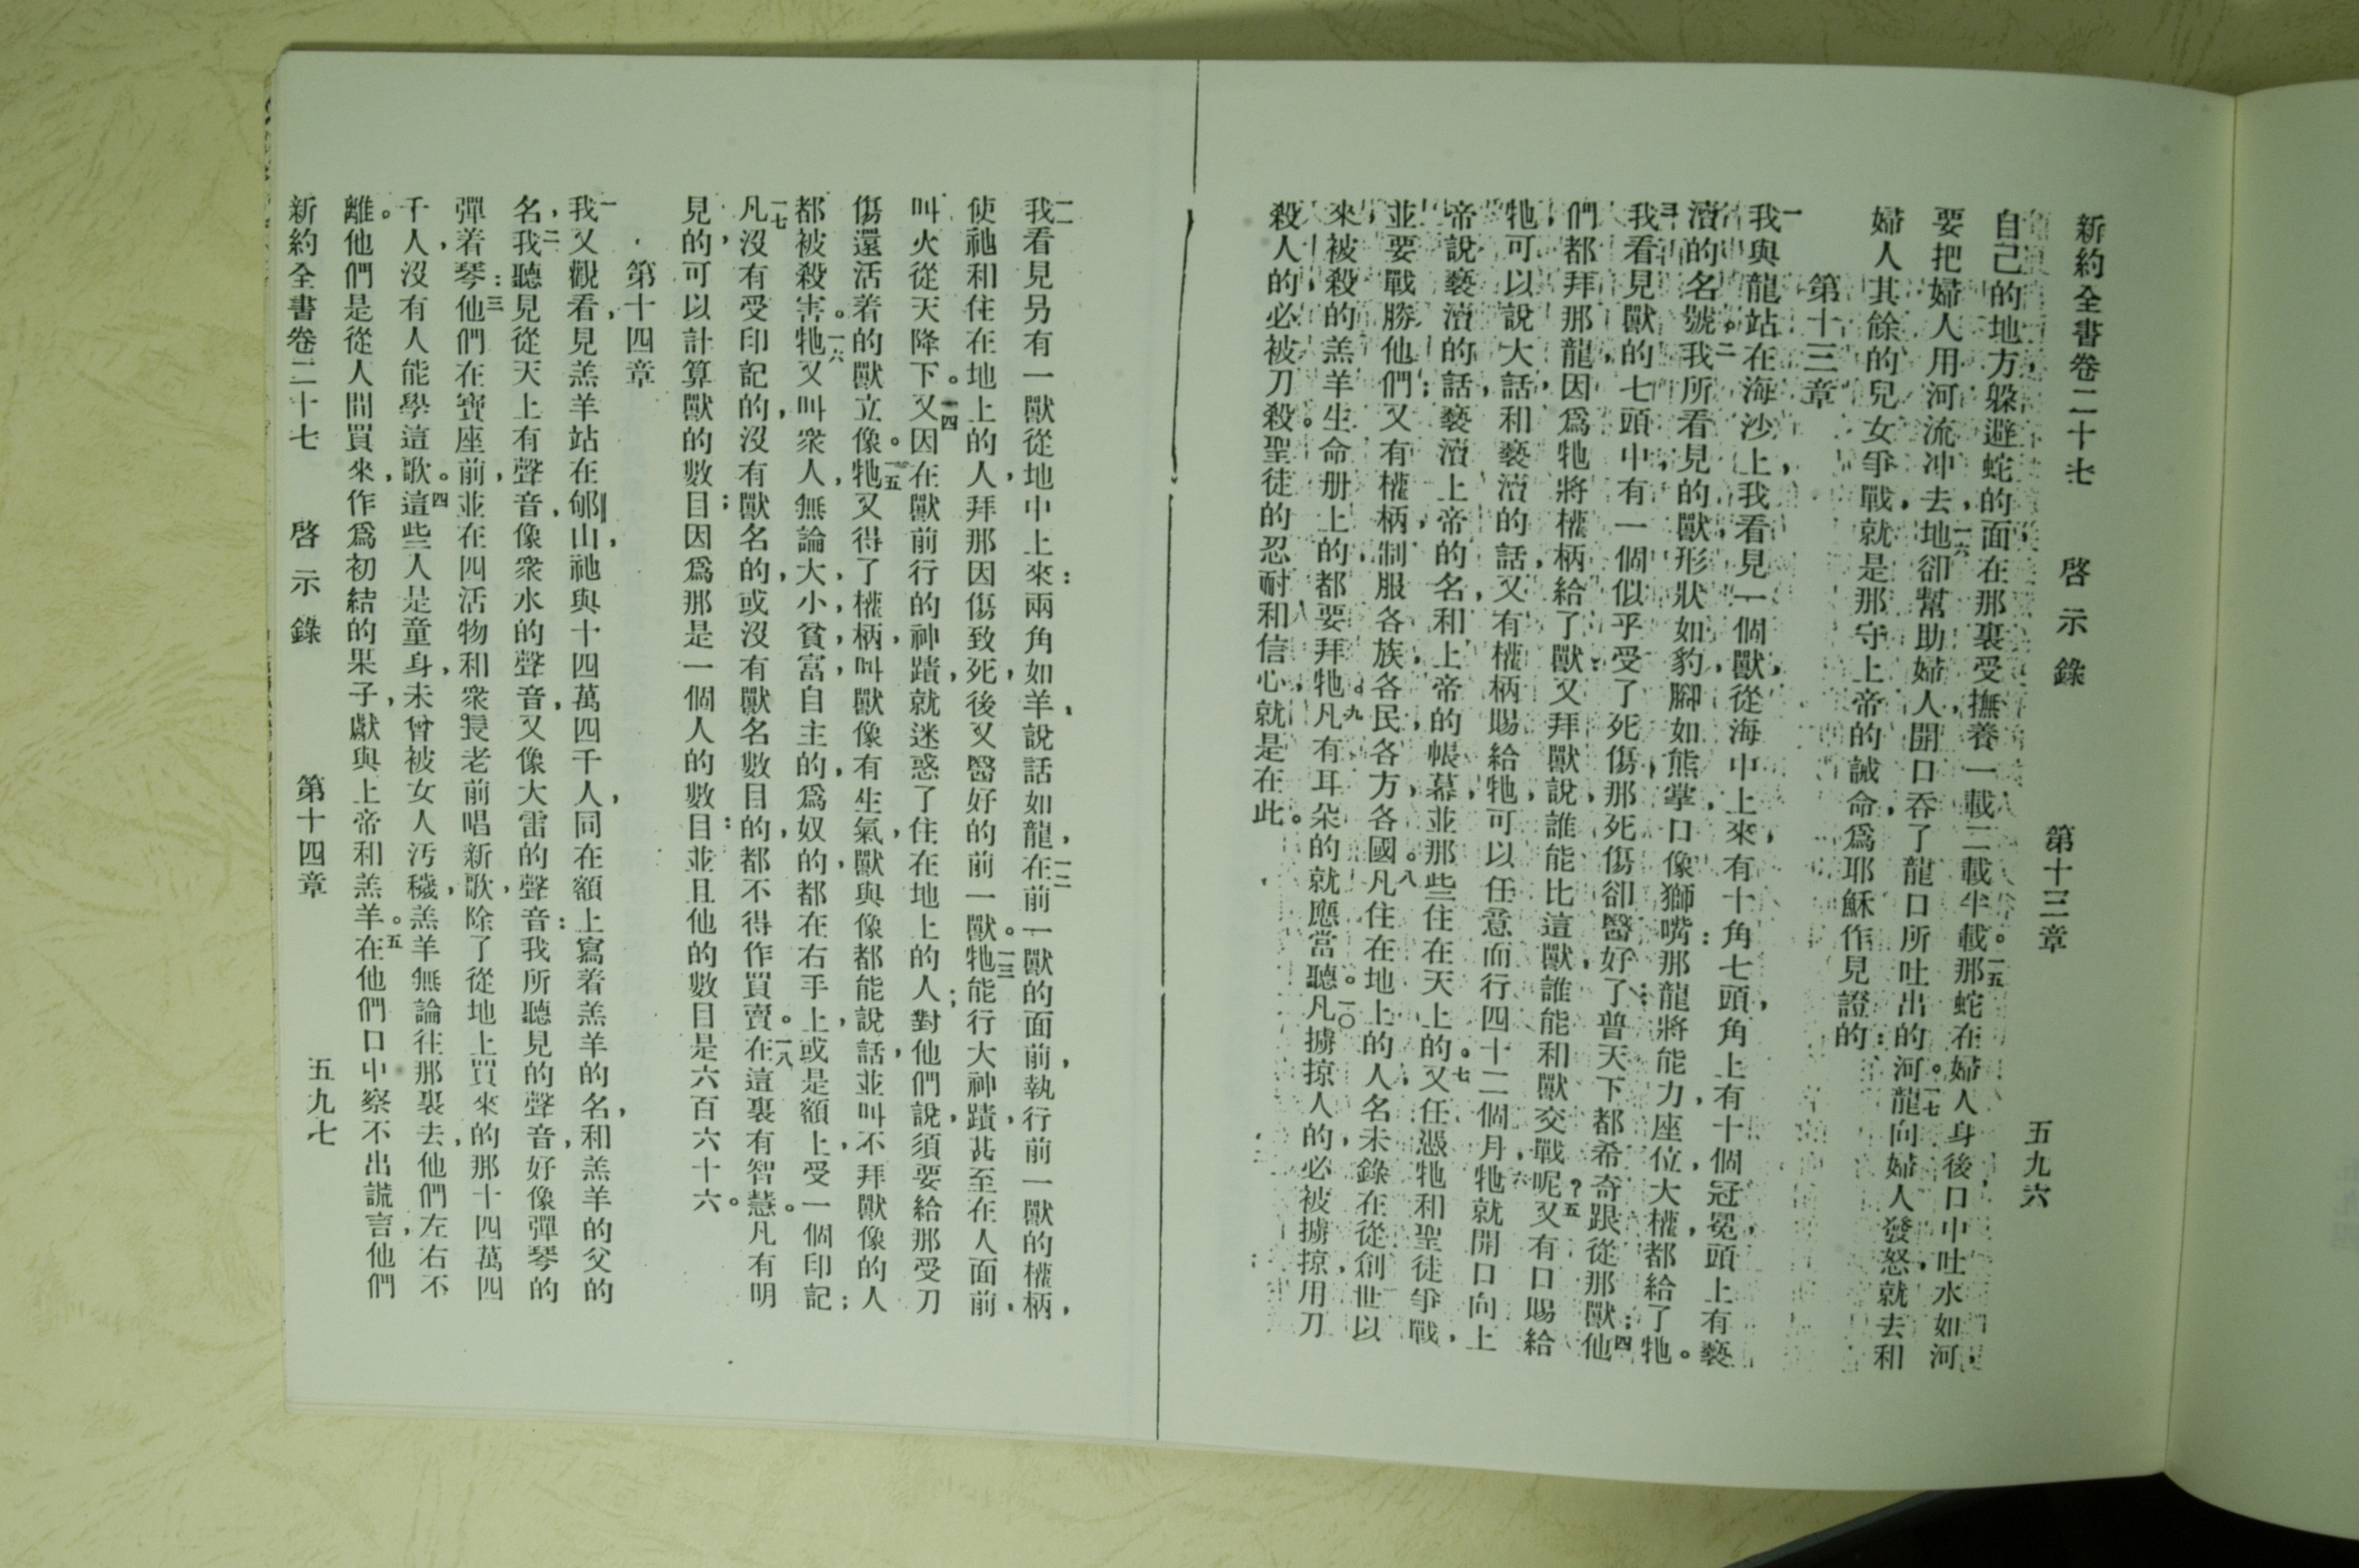 新約全書卷二十七 啓示錄 第十三章 五九六
自己的地方，躱避蛇的面在那裏受撫養一載二載半載。一五那蛇在婦人身後口中吐水如河，
要把婦人用河流冲去，一六地卻幫助婦人，開口吞了龍口所吐出的河。一七龍向婦人發怒，就去和
婦人其餘的兒女爭戰，就是那守上帝的誡命，爲耶穌作見證的：
第十三章
一我與龍站在海沙上，我看見一個獸，從海中上來，有十角七頭，角上有十個冠冕，頭上有褻
瀆的名號。二我所看見的獸，形狀如豹，腳如熊掌，口像獅嘴：那龍將能力，座位，大權，都給了牠。
三我看見獸的七頭中，有一個似乎受了死傷，那死傷卻醫好了：普天下都希奇，跟從那獸；四他
們都拜那龍，因爲牠將權柄給了獸，又拜獸，說，誰能比這獸，誰能和獸交戰呢？五又有口賜給
牠，可以說大話，和褻瀆的話，又有權柄賜給牠，可以任意而行四十二個月，六牠就開口向上
帝說褻瀆的話；褻瀆上帝的名，和上帝的帳幕，並那些住在天上的。七又任憑牠和聖徒爭戰，
並要戰勝他們，又有權柄制服各族，各民，各方，各國。八凡住在地上的人，名未錄在從創世以
來，被殺的羔羊生命册上的，都要拜牠。九凡有耳朵的，就應當聽。一〇凡擄掠人的，必被擄掠，用刀
殺人的，必被刀殺。聖徒的忍耐和信心，就是在此。
一一我看見另有一獸，從地中上來：兩角如羊，說話如龍，一二在前一獸的面前，執行前一獸的權柄，
使祂和住在地上的人，拜那因傷致死，後又醫好的前一獸。一三牠能行大神蹟，甚至在人面前，
叫火從天降下。一四又因在獸前行的神蹟，就迷惑了住在地上的人；對他們說，須要給那受刀
傷還活着的獸立像。一五牠又得了權柄，叫獸像有生氣，獸與像都能說話，並叫不拜獸像的人
都被殺害。一六牠又叫衆人，無論大，小，貧，富，自主的，爲奴的，都在右手上，或是額上，受一個印記；
一七凡沒有受印記的，沒有獸名的，或沒有獸名數目的，都不得作買賣。一八在這裏有智慧。凡有明
見的，可以計算獸的數目；因爲那是一個人的數目：並且他的數目是六百六十六。
第十四章
一我又觀看，見羔羊站在郇山，祂與十四萬四千人，同在額上寫着羔羊的名，和羔羊的父的
名，二我聽見從天上有聲音，像衆水的聲音，又像大雷的聲音：我所聽見的聲音，好像彈琴的
彈着琴：三他們在寶座前，並在四活物和衆長老前唱新歌，除了從地上買來的那十四萬四
千人，沒有人能學這歌。四這些人是童身，未曾被女人污穢，羔羊無論往那裏去，他們左右不
離。他們是從人間買來，作爲初結的果子，獻與上帝和羔羊。五在他們口中察不出謊言，他們
新約全書卷二十七 啓示錄 第十四章 五九七